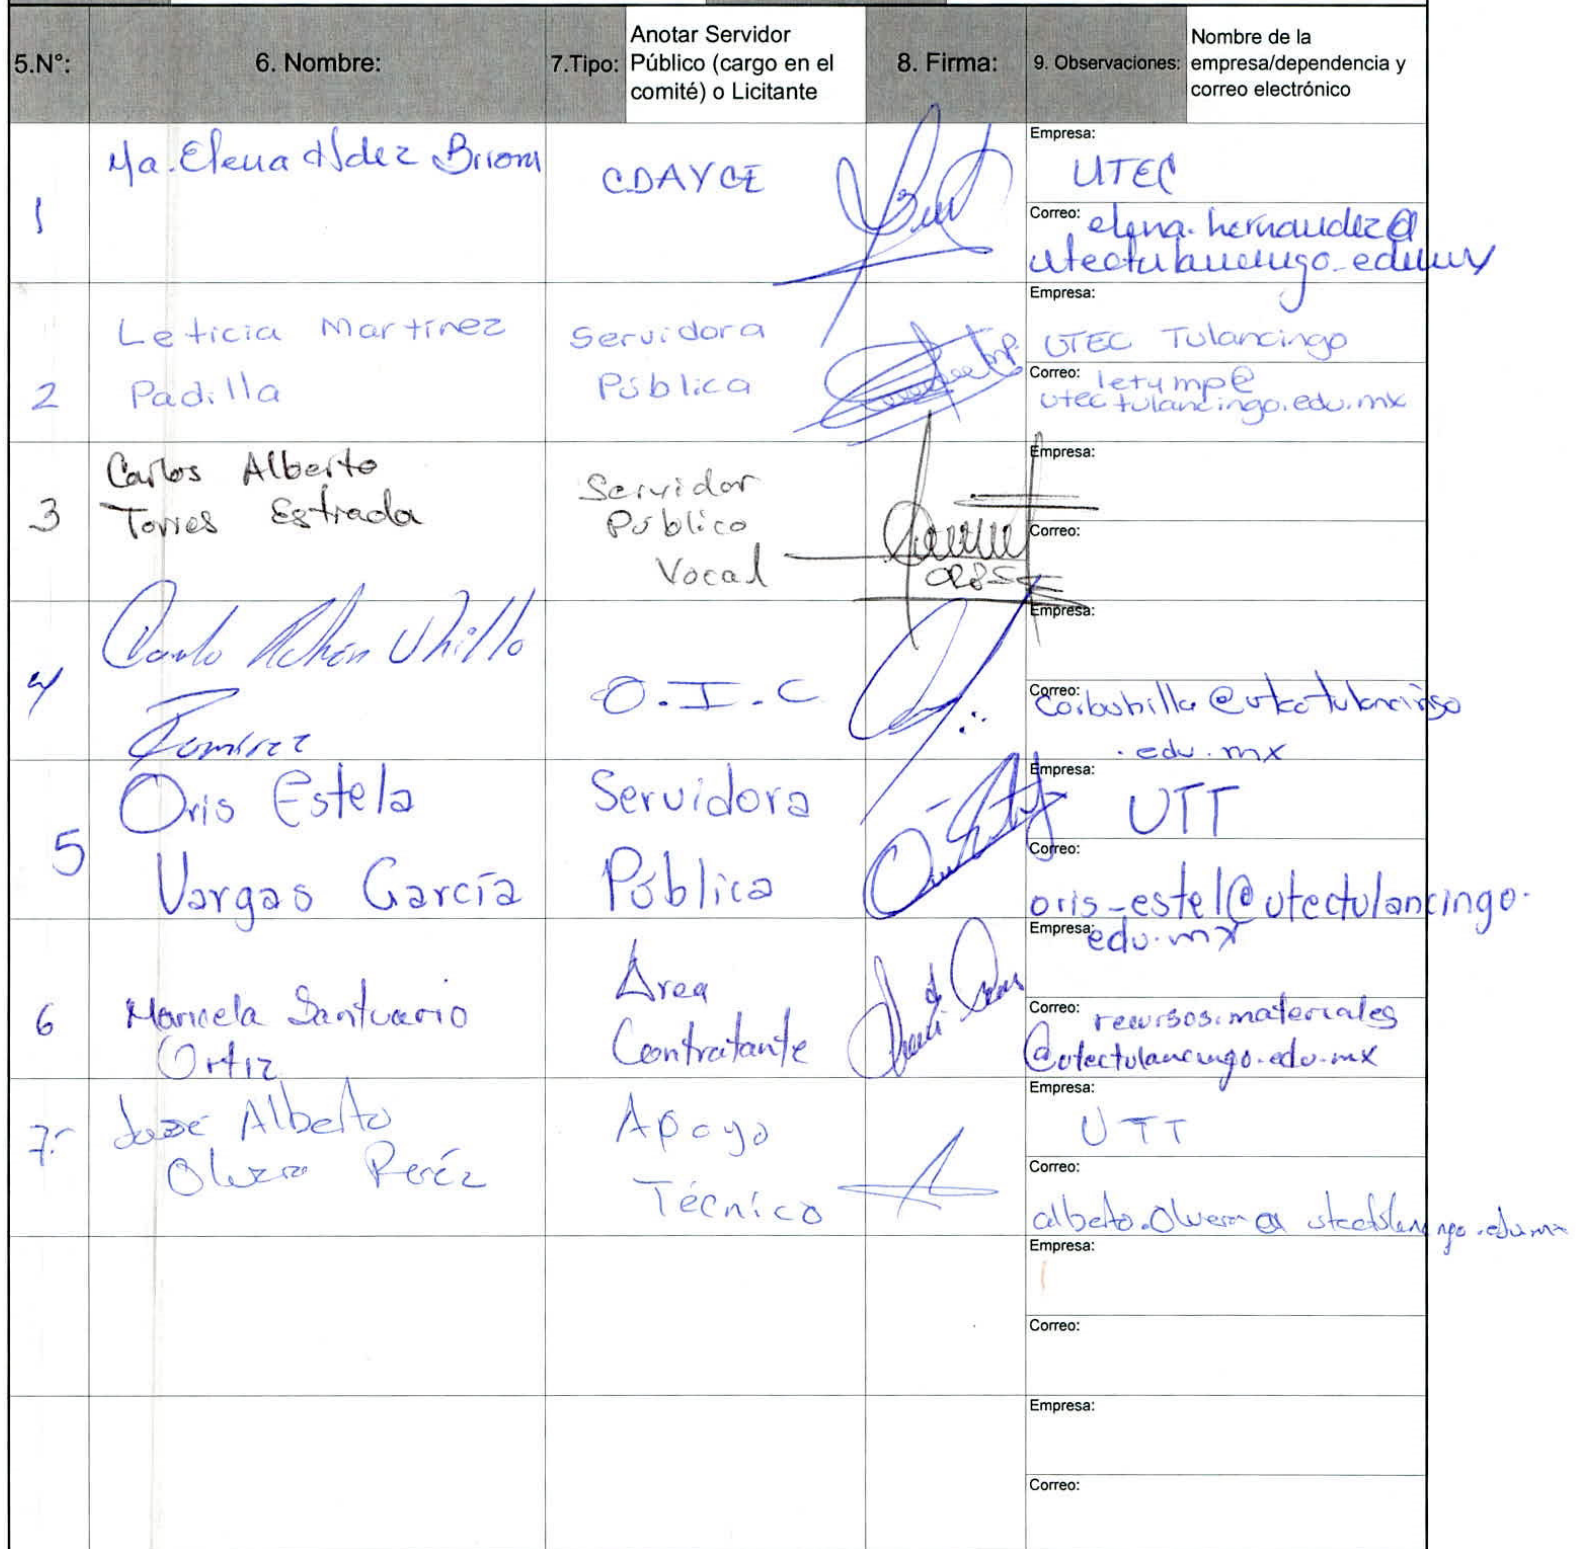 5.N°:
6. Nombre:
7.Tipo:
Anotar Servidor
Público (cargo en el
comité) o Licitante
8. Firma:
9. Observaciones:
Nombre de la
empresa/dependencia y
correo electrónico
1
Ma. Elena Hdez
CDAYCE
Empresa:
UTEC
Correo: elena.hernandez@
utectulancingo.edu.mx
2
Leticia Martínez
Padilla
Servidora
Pública
Empresa:
UTEC Tulancingo
Correo: letymp@
utectulancingo.edu.mx
3
Carlos Alberto
Torres Estrada
Servidor
Público
Vocal
Empresa:
Correo:
4
Ramírez
O.I.C
Empresa:
Correo:
.edu.mx
5
Oris Estela
Vargas García
Servidora
Pública
Empresa:
UTT
Correo:
oris_estel@utectulancingo.
edu.mx
6
Maricela Santuario
Ortiz
Área
Contratante
Empresa:
Correo: recursos.materiales
@utectulancingo.edu.mx
7.-
José Alberto
Olvera Peréz
Apoyo
Técnico
Empresa:
UTT
Correo:
alberto.olvera@utectulancingo.edu.mx
Empresa:
Correo:
Empresa:
Correo: